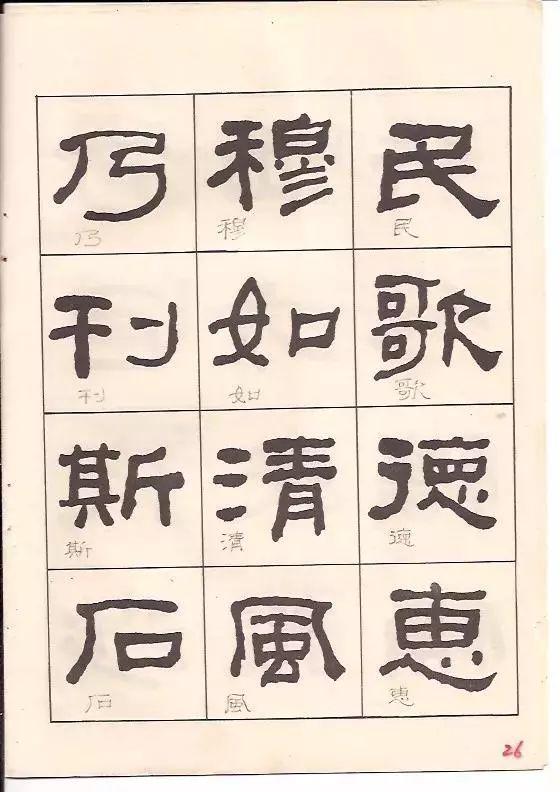 民歌徳恵
民歌徳恵
穆如清風
穆如清風
乃刊斯石
乃刊斯石
26